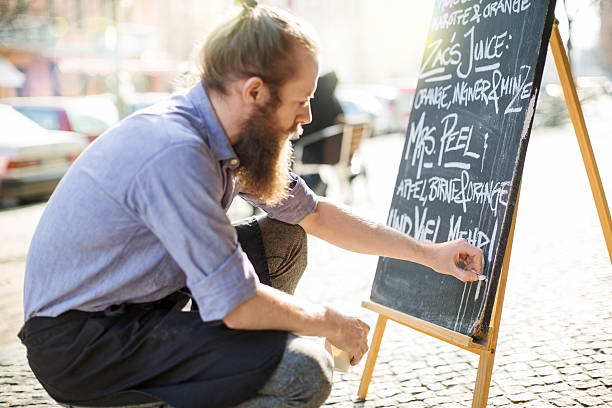 &ORANGE
ZAC'S JUICE:
ORANGE, INGWER & MINZE
MRS. PEEL
APFEL, BIRNE & ORANGE
UND VIEL MEHR